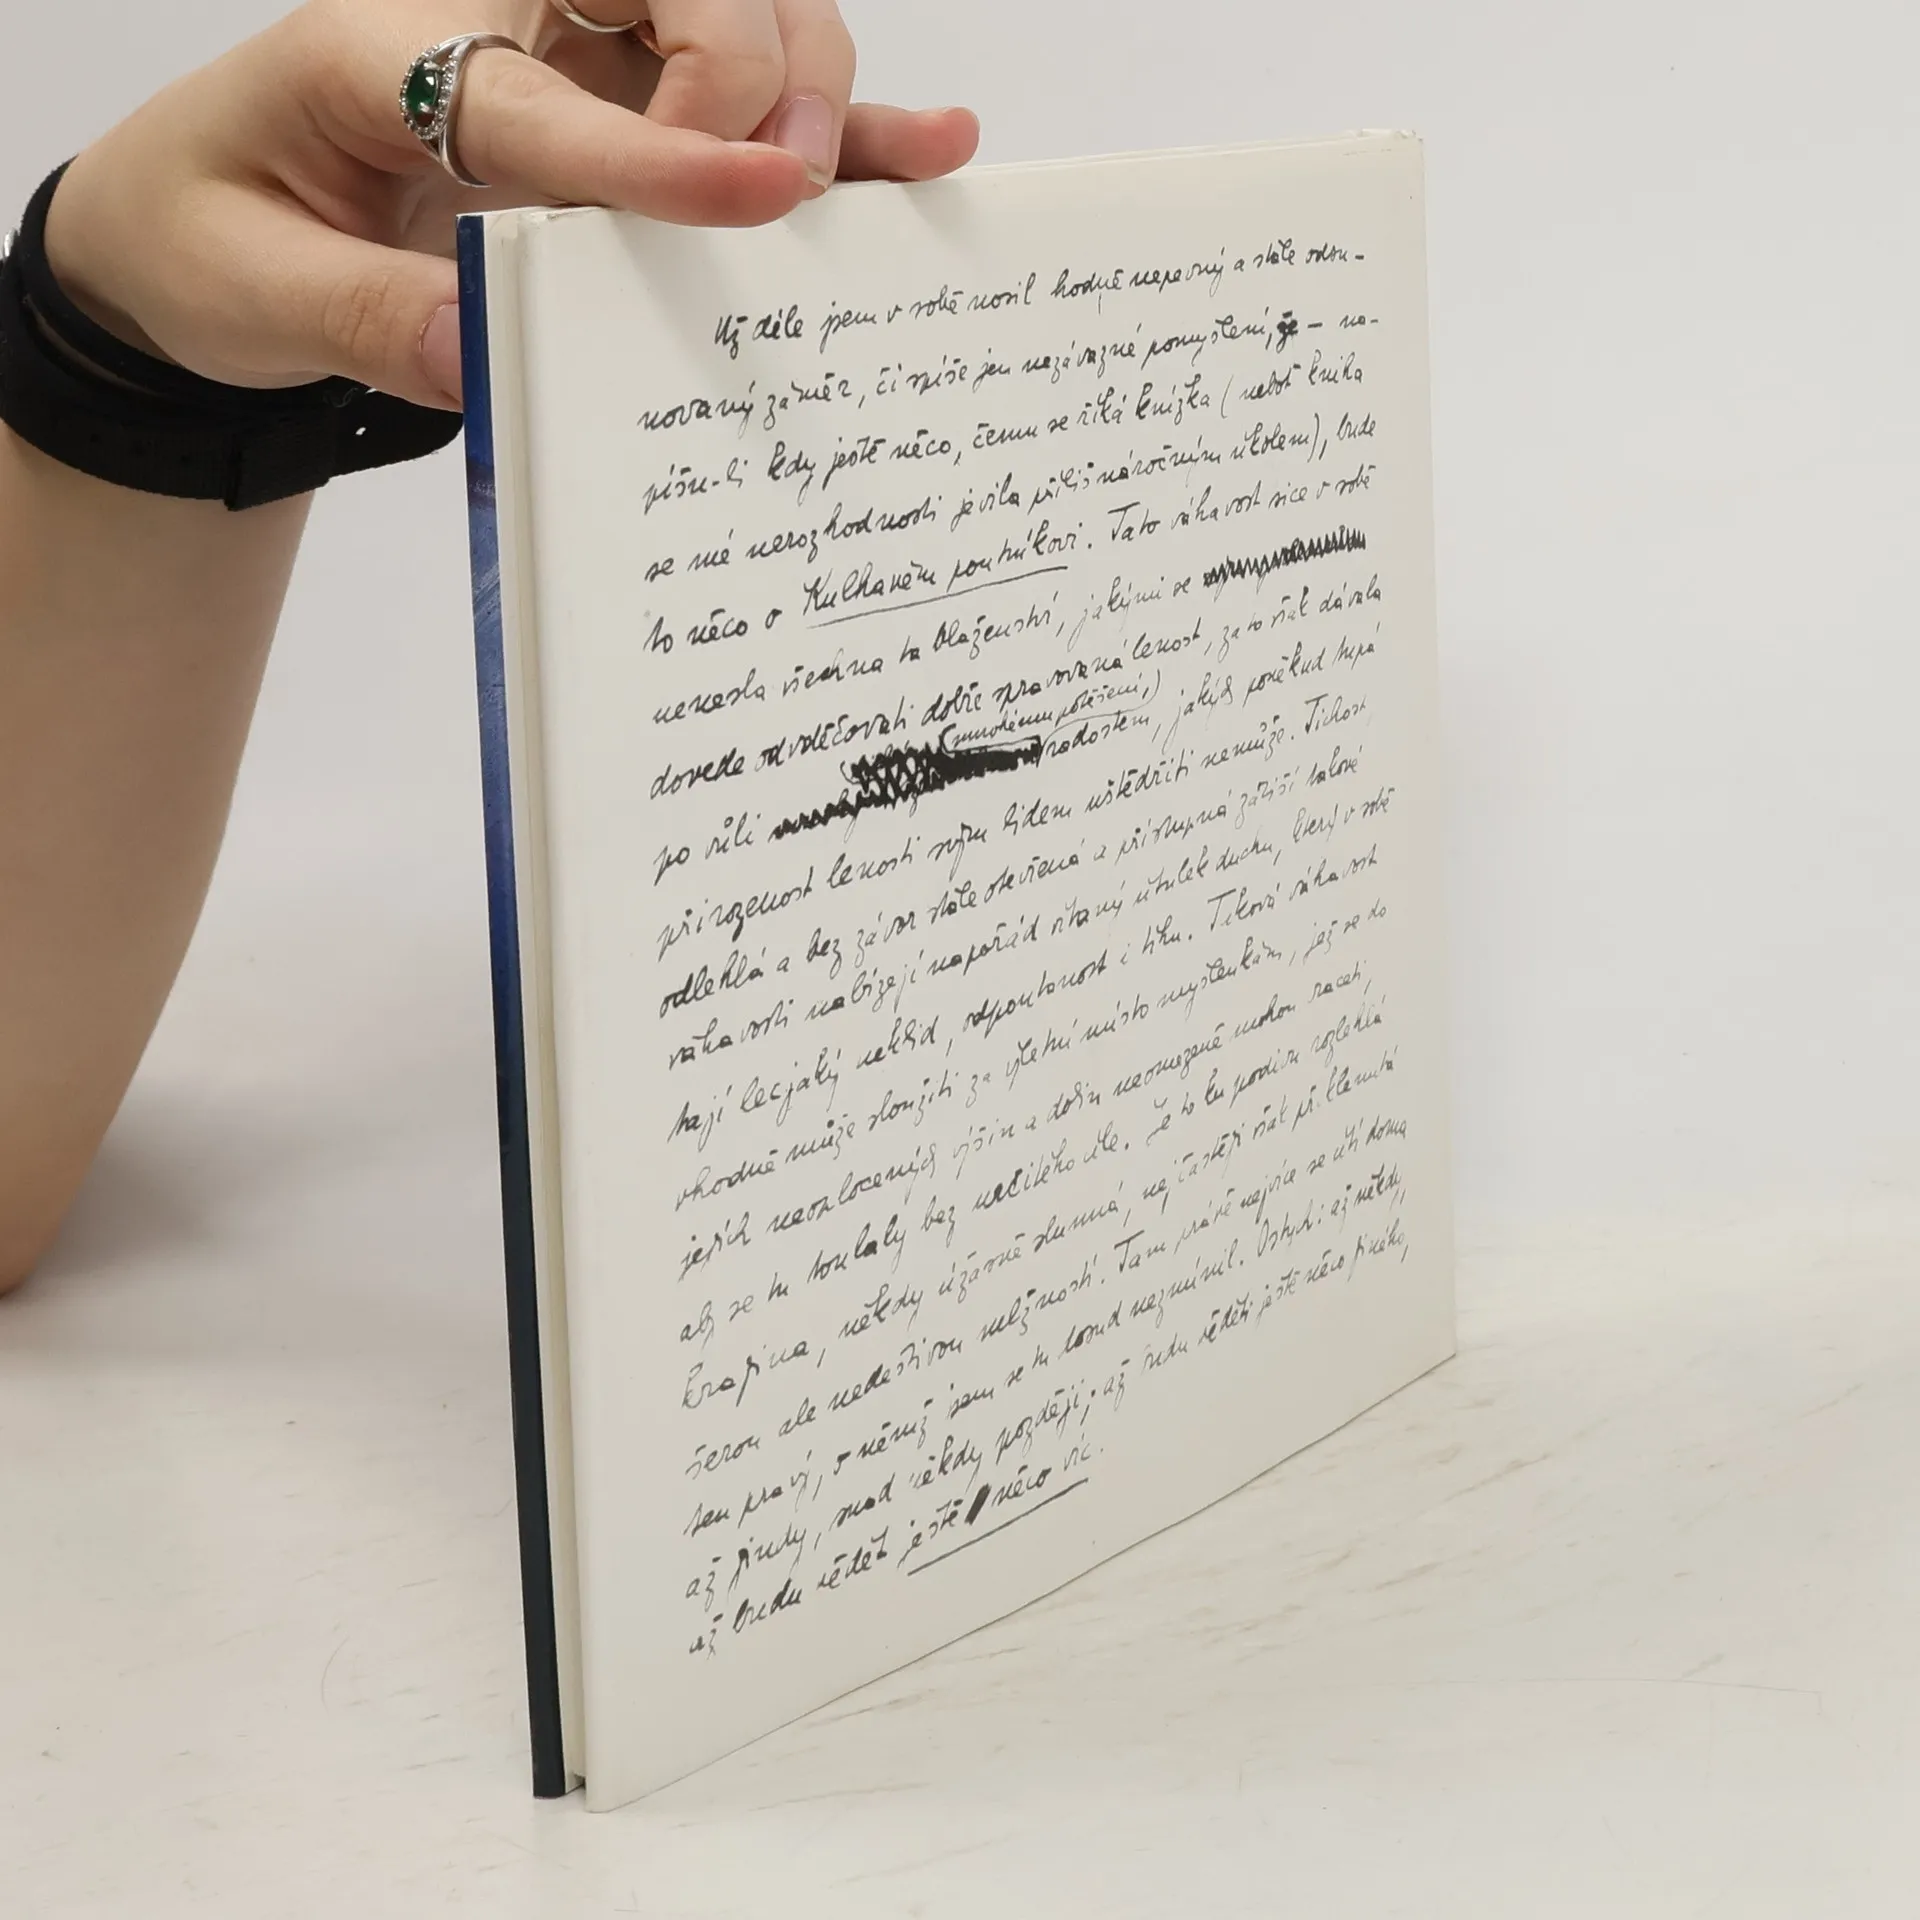 Už déle jsem v sobě nosil hodně nepevný a stále odsu-
novaný záměr, či spíše jen nezávazné pomyšlení, že – na-
píšu-li kdy ještě něco, čemu se říká knížka (neboť kniha
se mé nerozhodnosti jevila příliš náročným úkolem), bude
to něco o Kulhavém poutníkovi. Tato váhavost sice v sobě
nenesla všechna ta blaženství, jakými se
dovede odvděčovati dobře spravovaná lenost, za to však dávala
po vůli (mnohému potěšení,) radostem, jakých poněkud tupá
přirozenost lenosti svým lidem uštědřiti nemůže. Tichost,
odlehlá a bez závor stále otevřená a přístupná zátiší takové
váhavosti nabízejí napořád vítaný útulek duchu, který v sobě
tají lecjaký neklid, odpoutanost i tíhu. Taková váhavost
vhodně může sloužiti za výletní místo myšlenkám, jež se do
jejích neozlocených výšin a dolin neomezeně mohou raceti,
aby se tu toulaly bez určitého cíle. Je to ku podivu rozlehlá
krajina, někdy úžasně slunná, nejčastěji však přiklenutá
šerou ale nedeštivou mlžností. Tam právě nejvíce se cítí doma
ten pravý, o němž jsem se tu dosud nezmínil. Ostych: až někdy,
až jindy, snad někdy později; až budu věděti ještě něco jiného,
až budu vědět ještě něco víc.